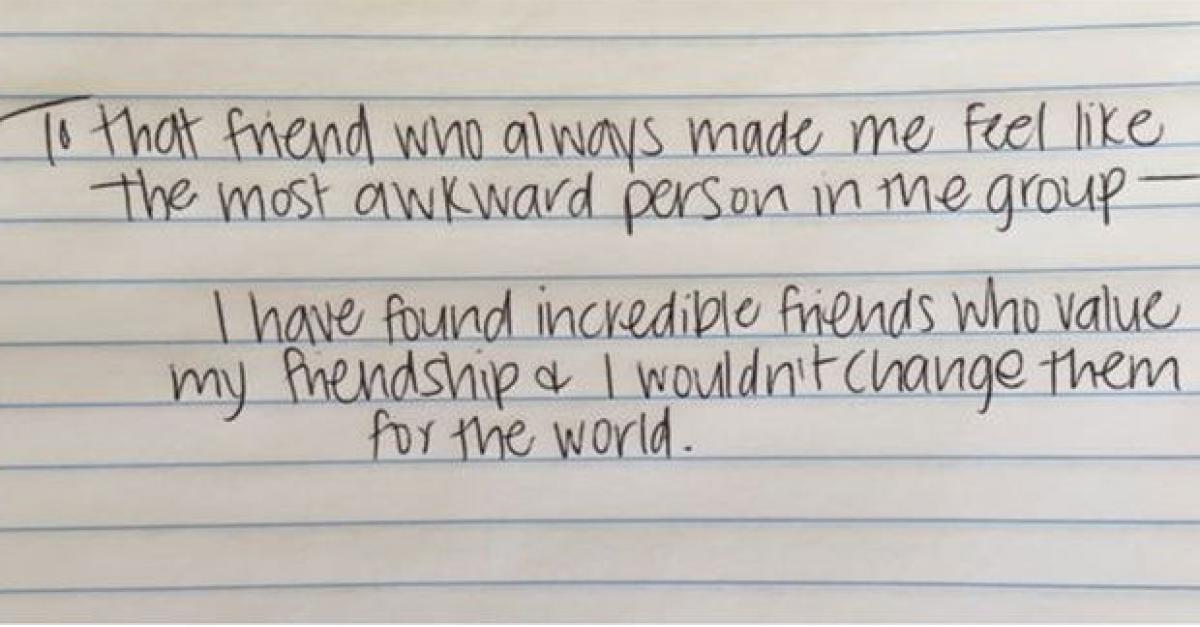 To that friend who always made me feel like
the most awkward person in the group —
I have found incredible friends who value
my friendship & I wouldn't change them
for the world.